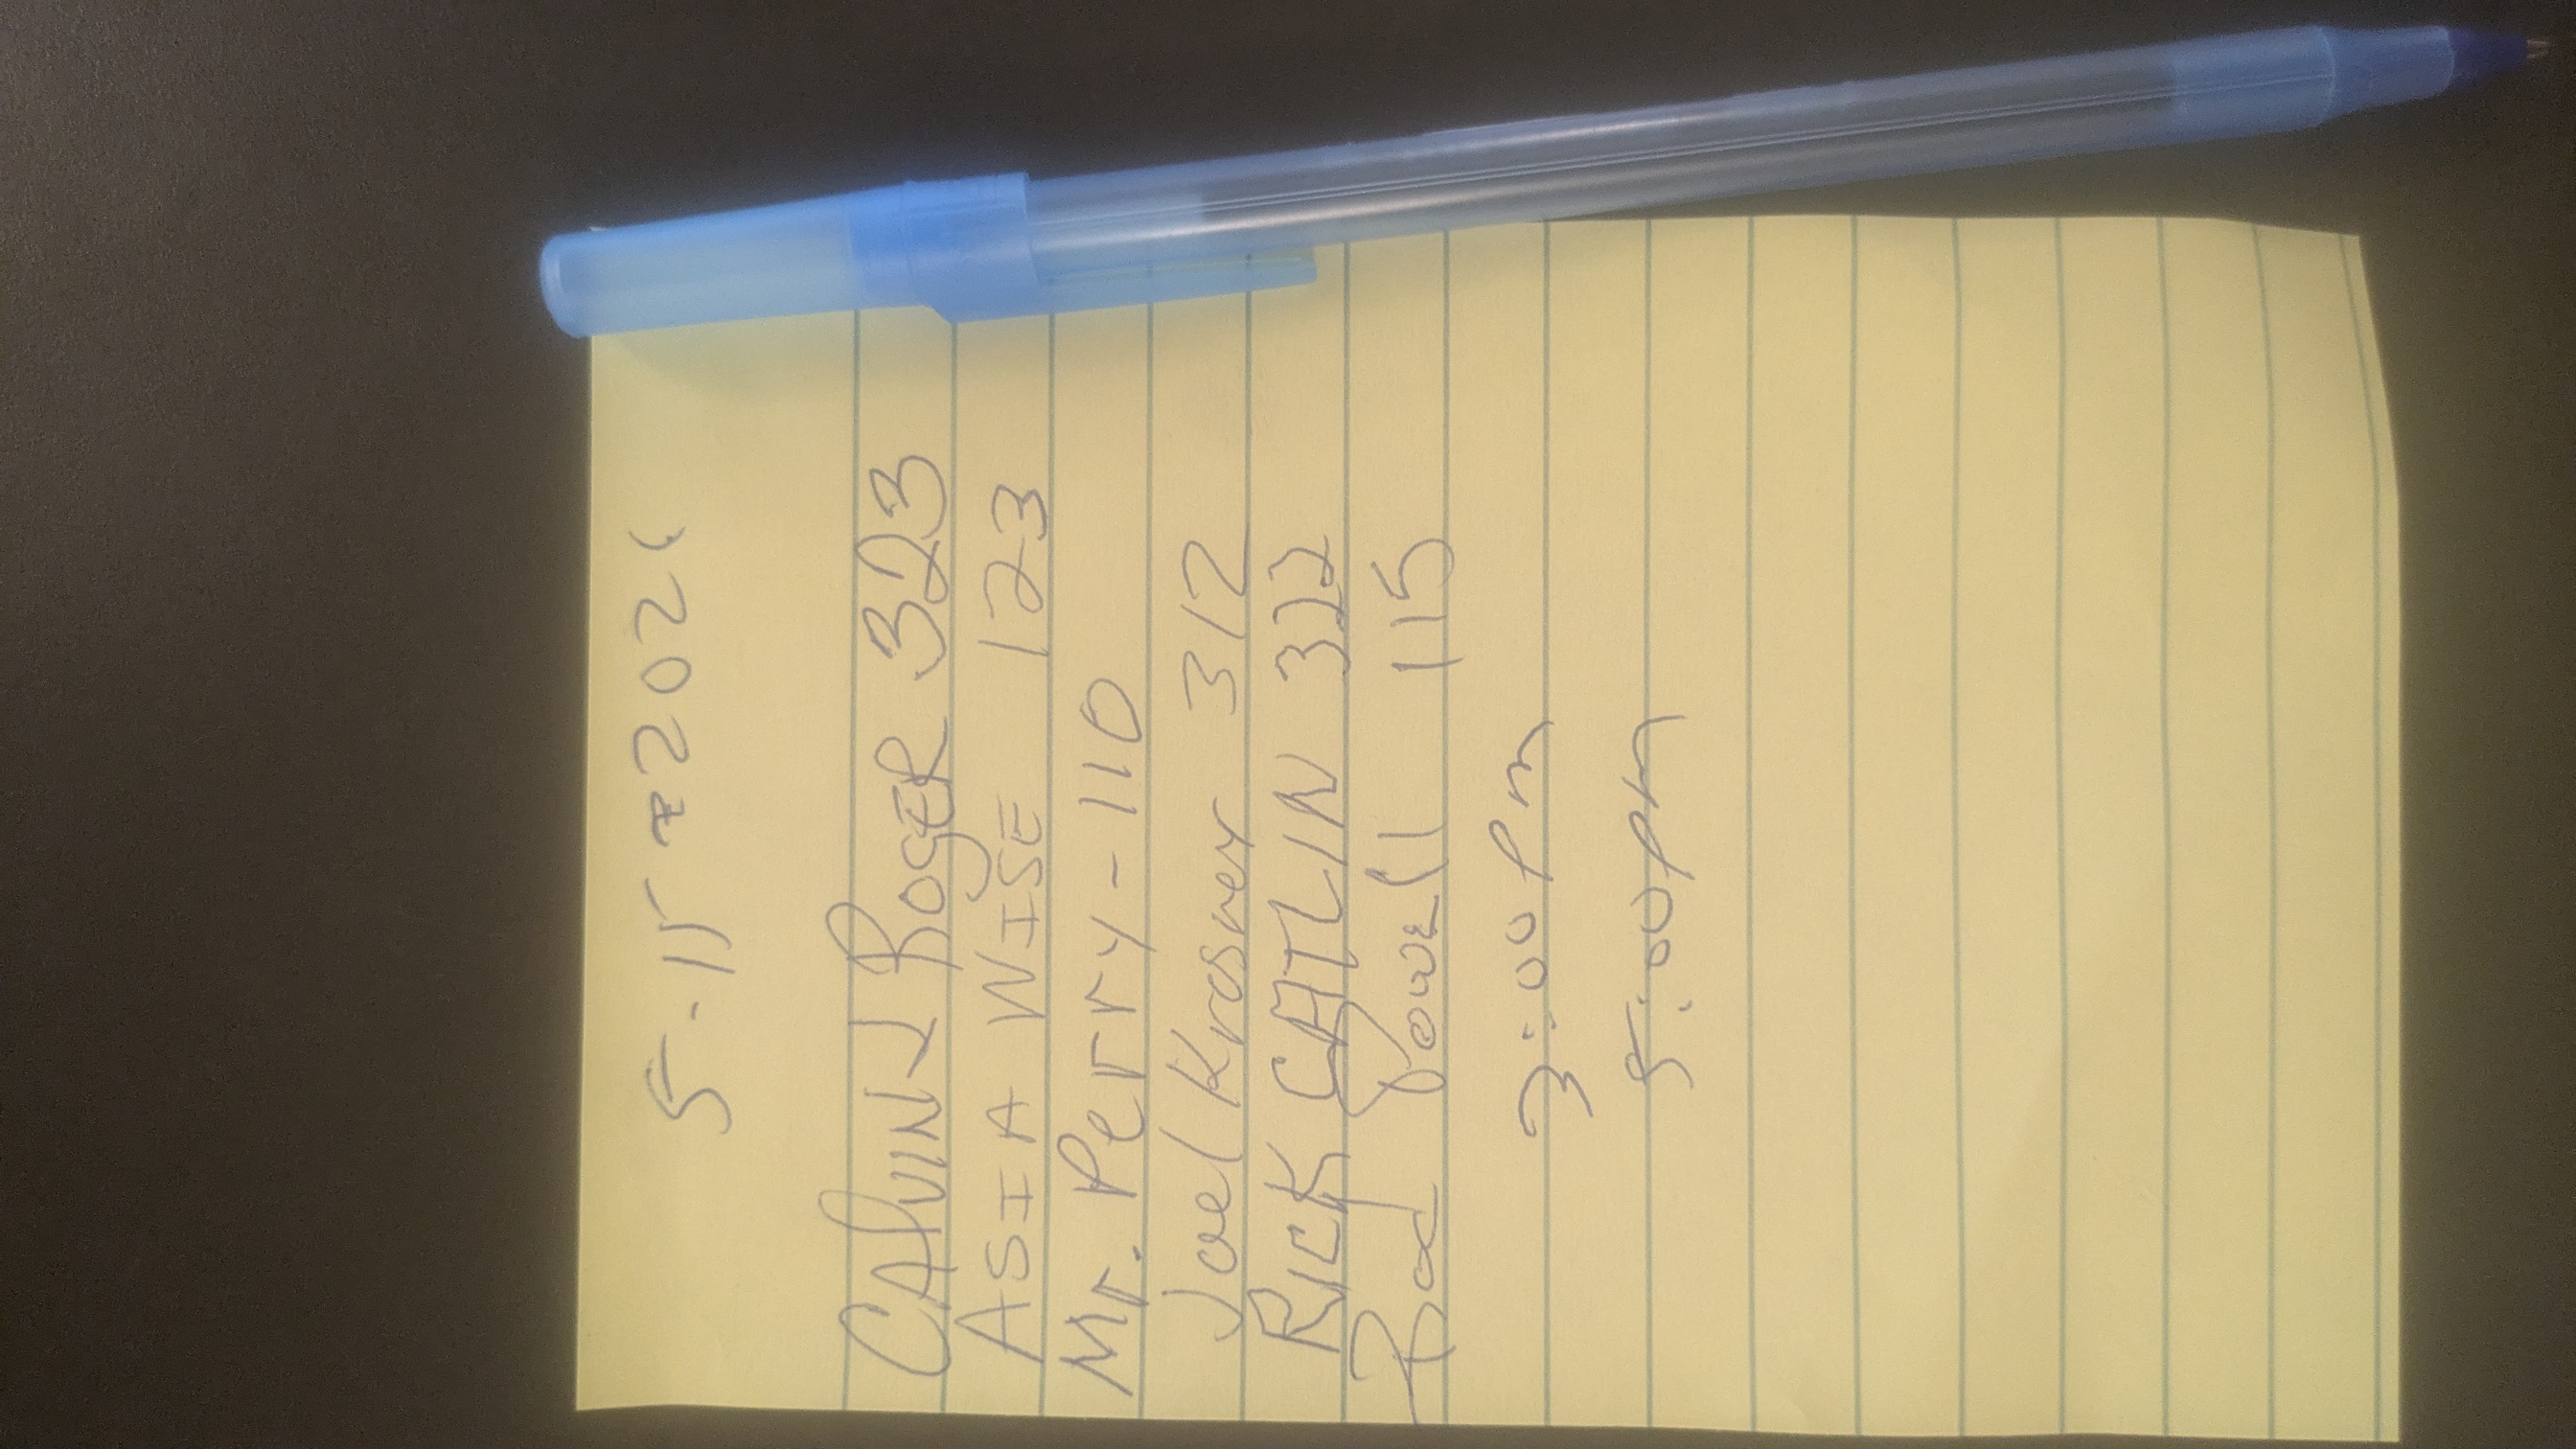 5-15-2021
CAlVIN J Boger 323
ASIA WISE 123
Mr. Perry - 110
Joel Krasner 312
RICK CATLIN 322
Rod Powell 115
3:00 Pm
5:00 pm